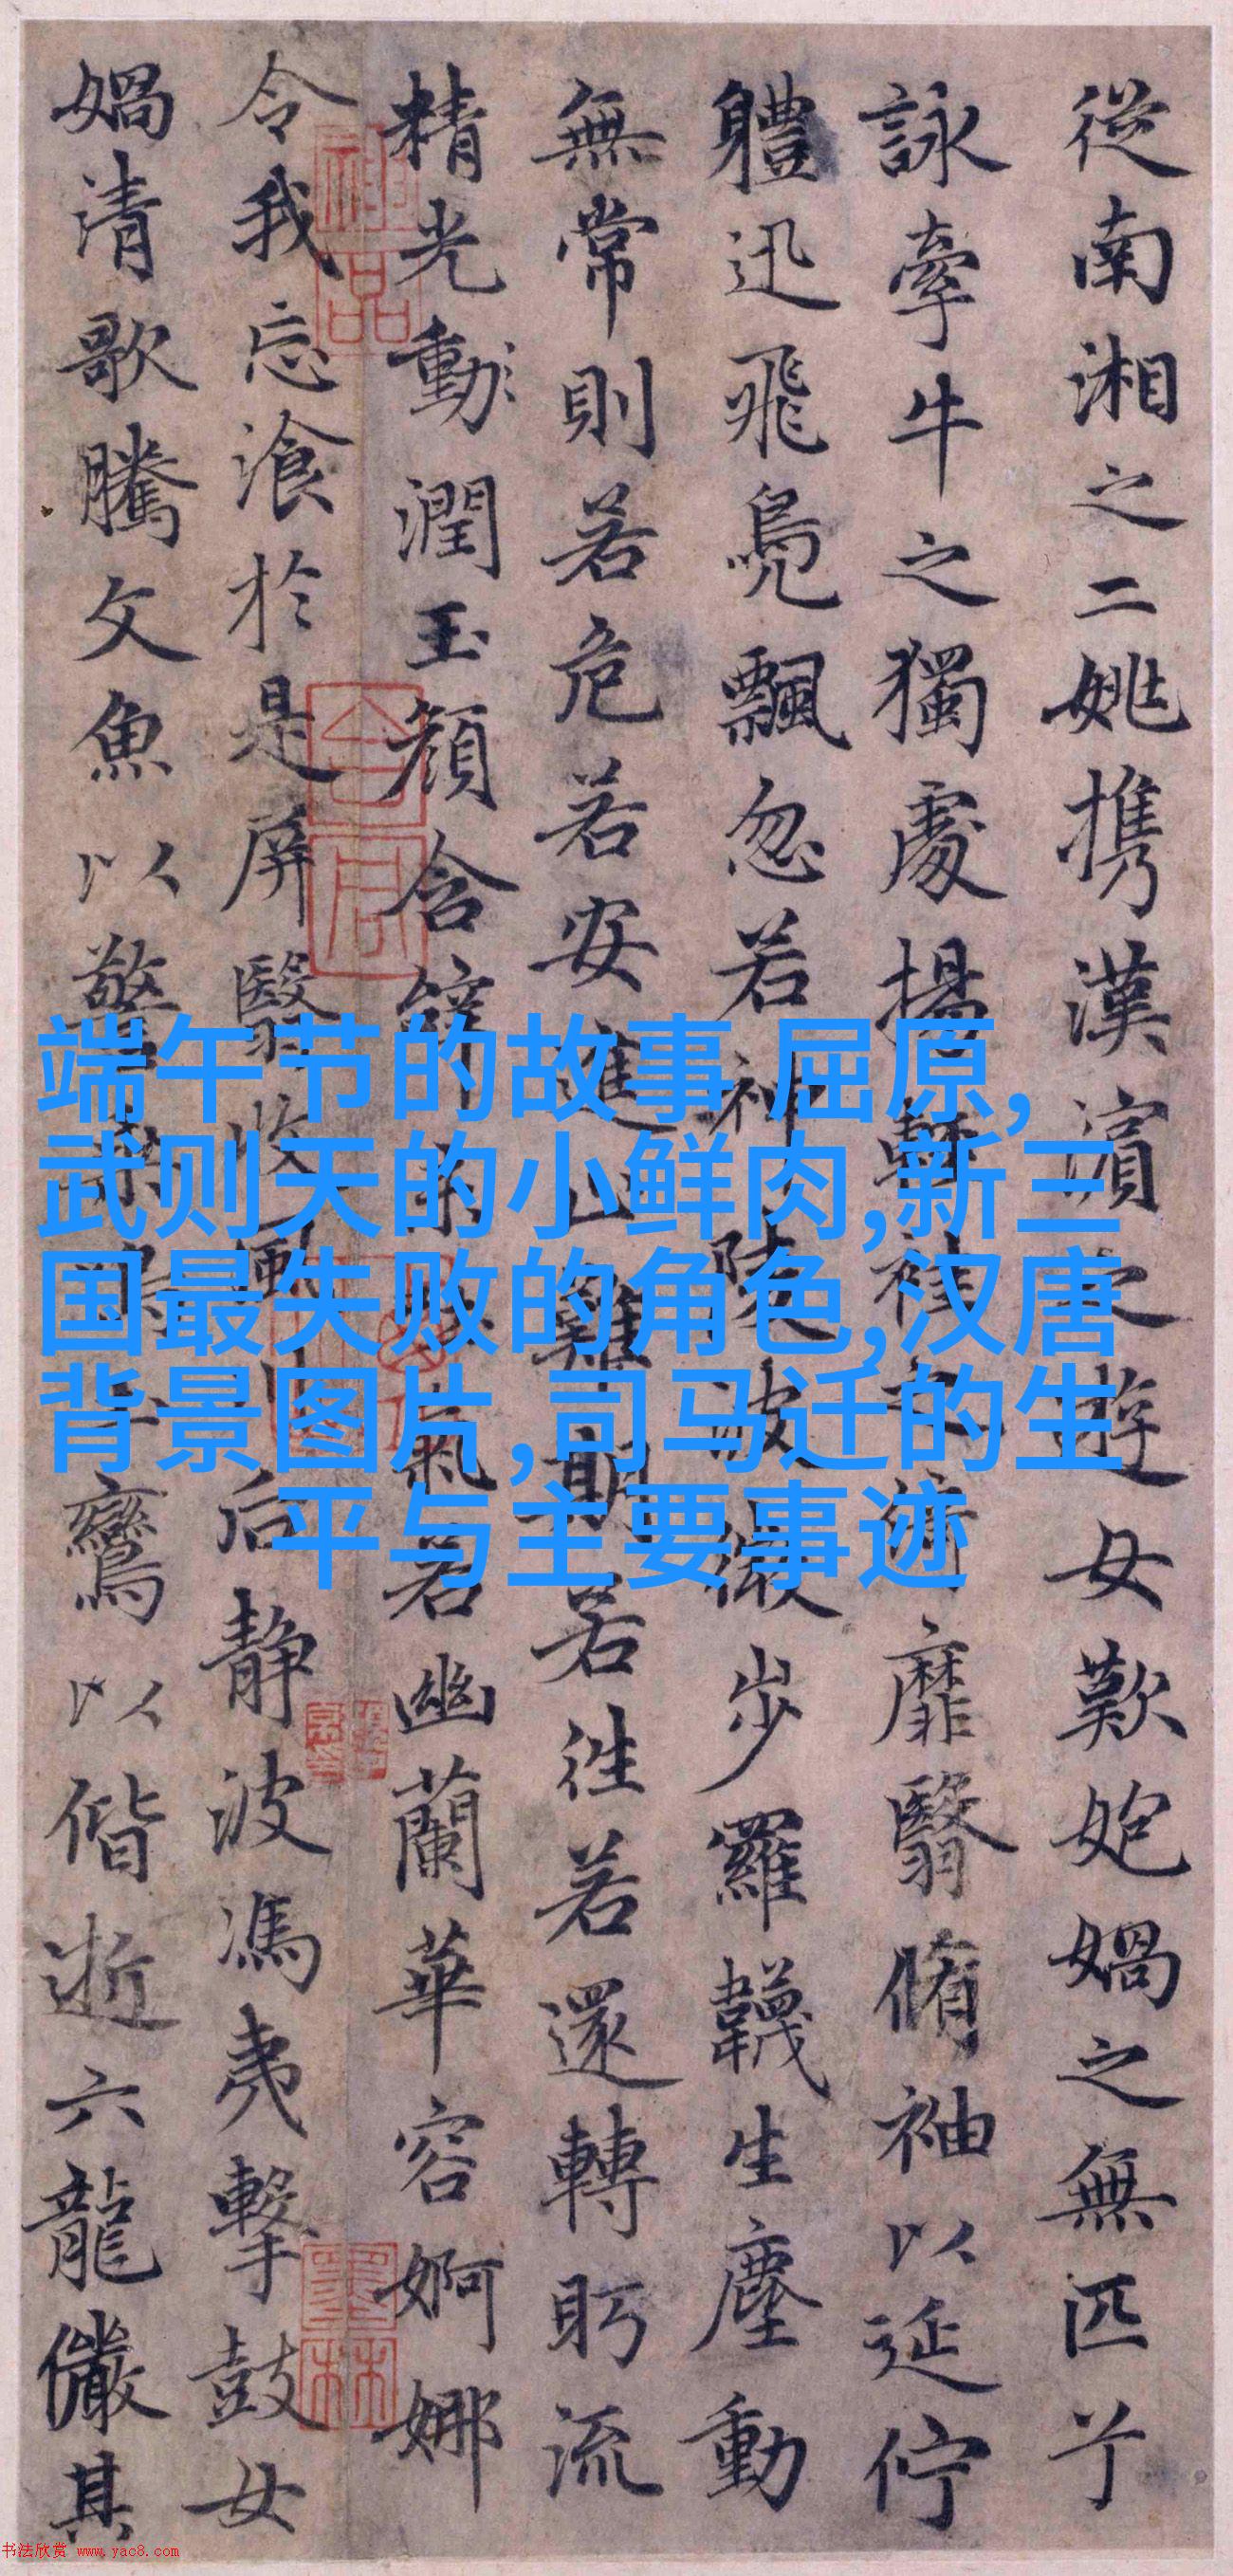 從南湘之二姚攜漢濱之遊女歎媧之無匹兮
詠牽牛之獨處揚輕袿之靡翳脩袖以延佇
體迅飛鳧飄忽若神陵波微步羅韈生塵動
無常則若危若安進止難期若往若還轉眄流
精光動潤玉顔含辭未吐氣若幽蘭華容婀娜
令我忘湌於是屏翳收風川后静波馮夷擊鼓女
媧清歌騰文魚以警乘鳴玉鸞以偕逝六龍儼其
神品
墨林
端午节的故事 屈原,
武则天的小鲜肉,新三
国最失败的角色,汉唐
背景图片,司马迁的生
平与主要事迹
书法欣赏 www.yac8.com